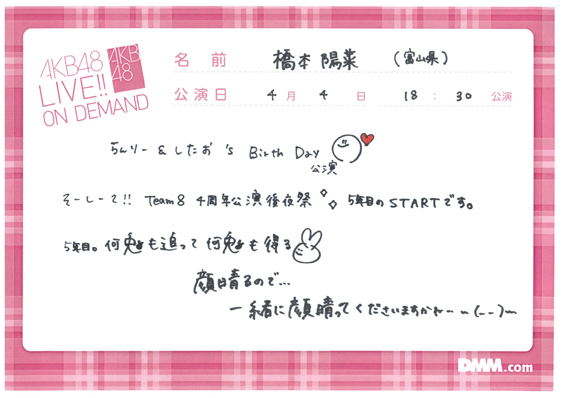 AKB48
LIVE!!
ON DEMAND
AKB
48
名 前 橋本 陽菜 (富山県)
公演日 4 月 4 日 18 : 30 公演
ちんりー & したお 's Birth Day
公演
そーしーて!! Team 8 4周年公演後夜祭 5年目のSTARTです。
5年目。何兎も追って何兎も得る
顔晴るので...
一緒に顔晴ってくださいますかねー~(--)~
DMM.com